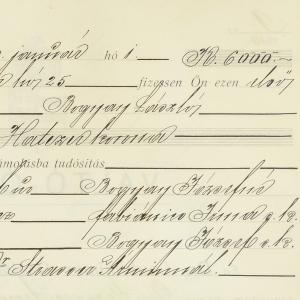 január hó 1 K. 6000.-
hó 25 fizessen Ön ezen első
Bogyay László
Hatezer korona
ámolásba tudósítás
úr Bogyay Józsefné
Fabiánics Ilma s.k.
Bogyay József s.k.
Strasser